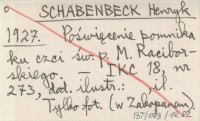 SCHABENBECK Henryk
1927. Poświęcenie pomnika
ku czci św. p. M. Racibor-
skiego. – IKC 18, nr
273, dod. ilustr.: il.
Tylko fot. (w Zakopanem)
137/003/